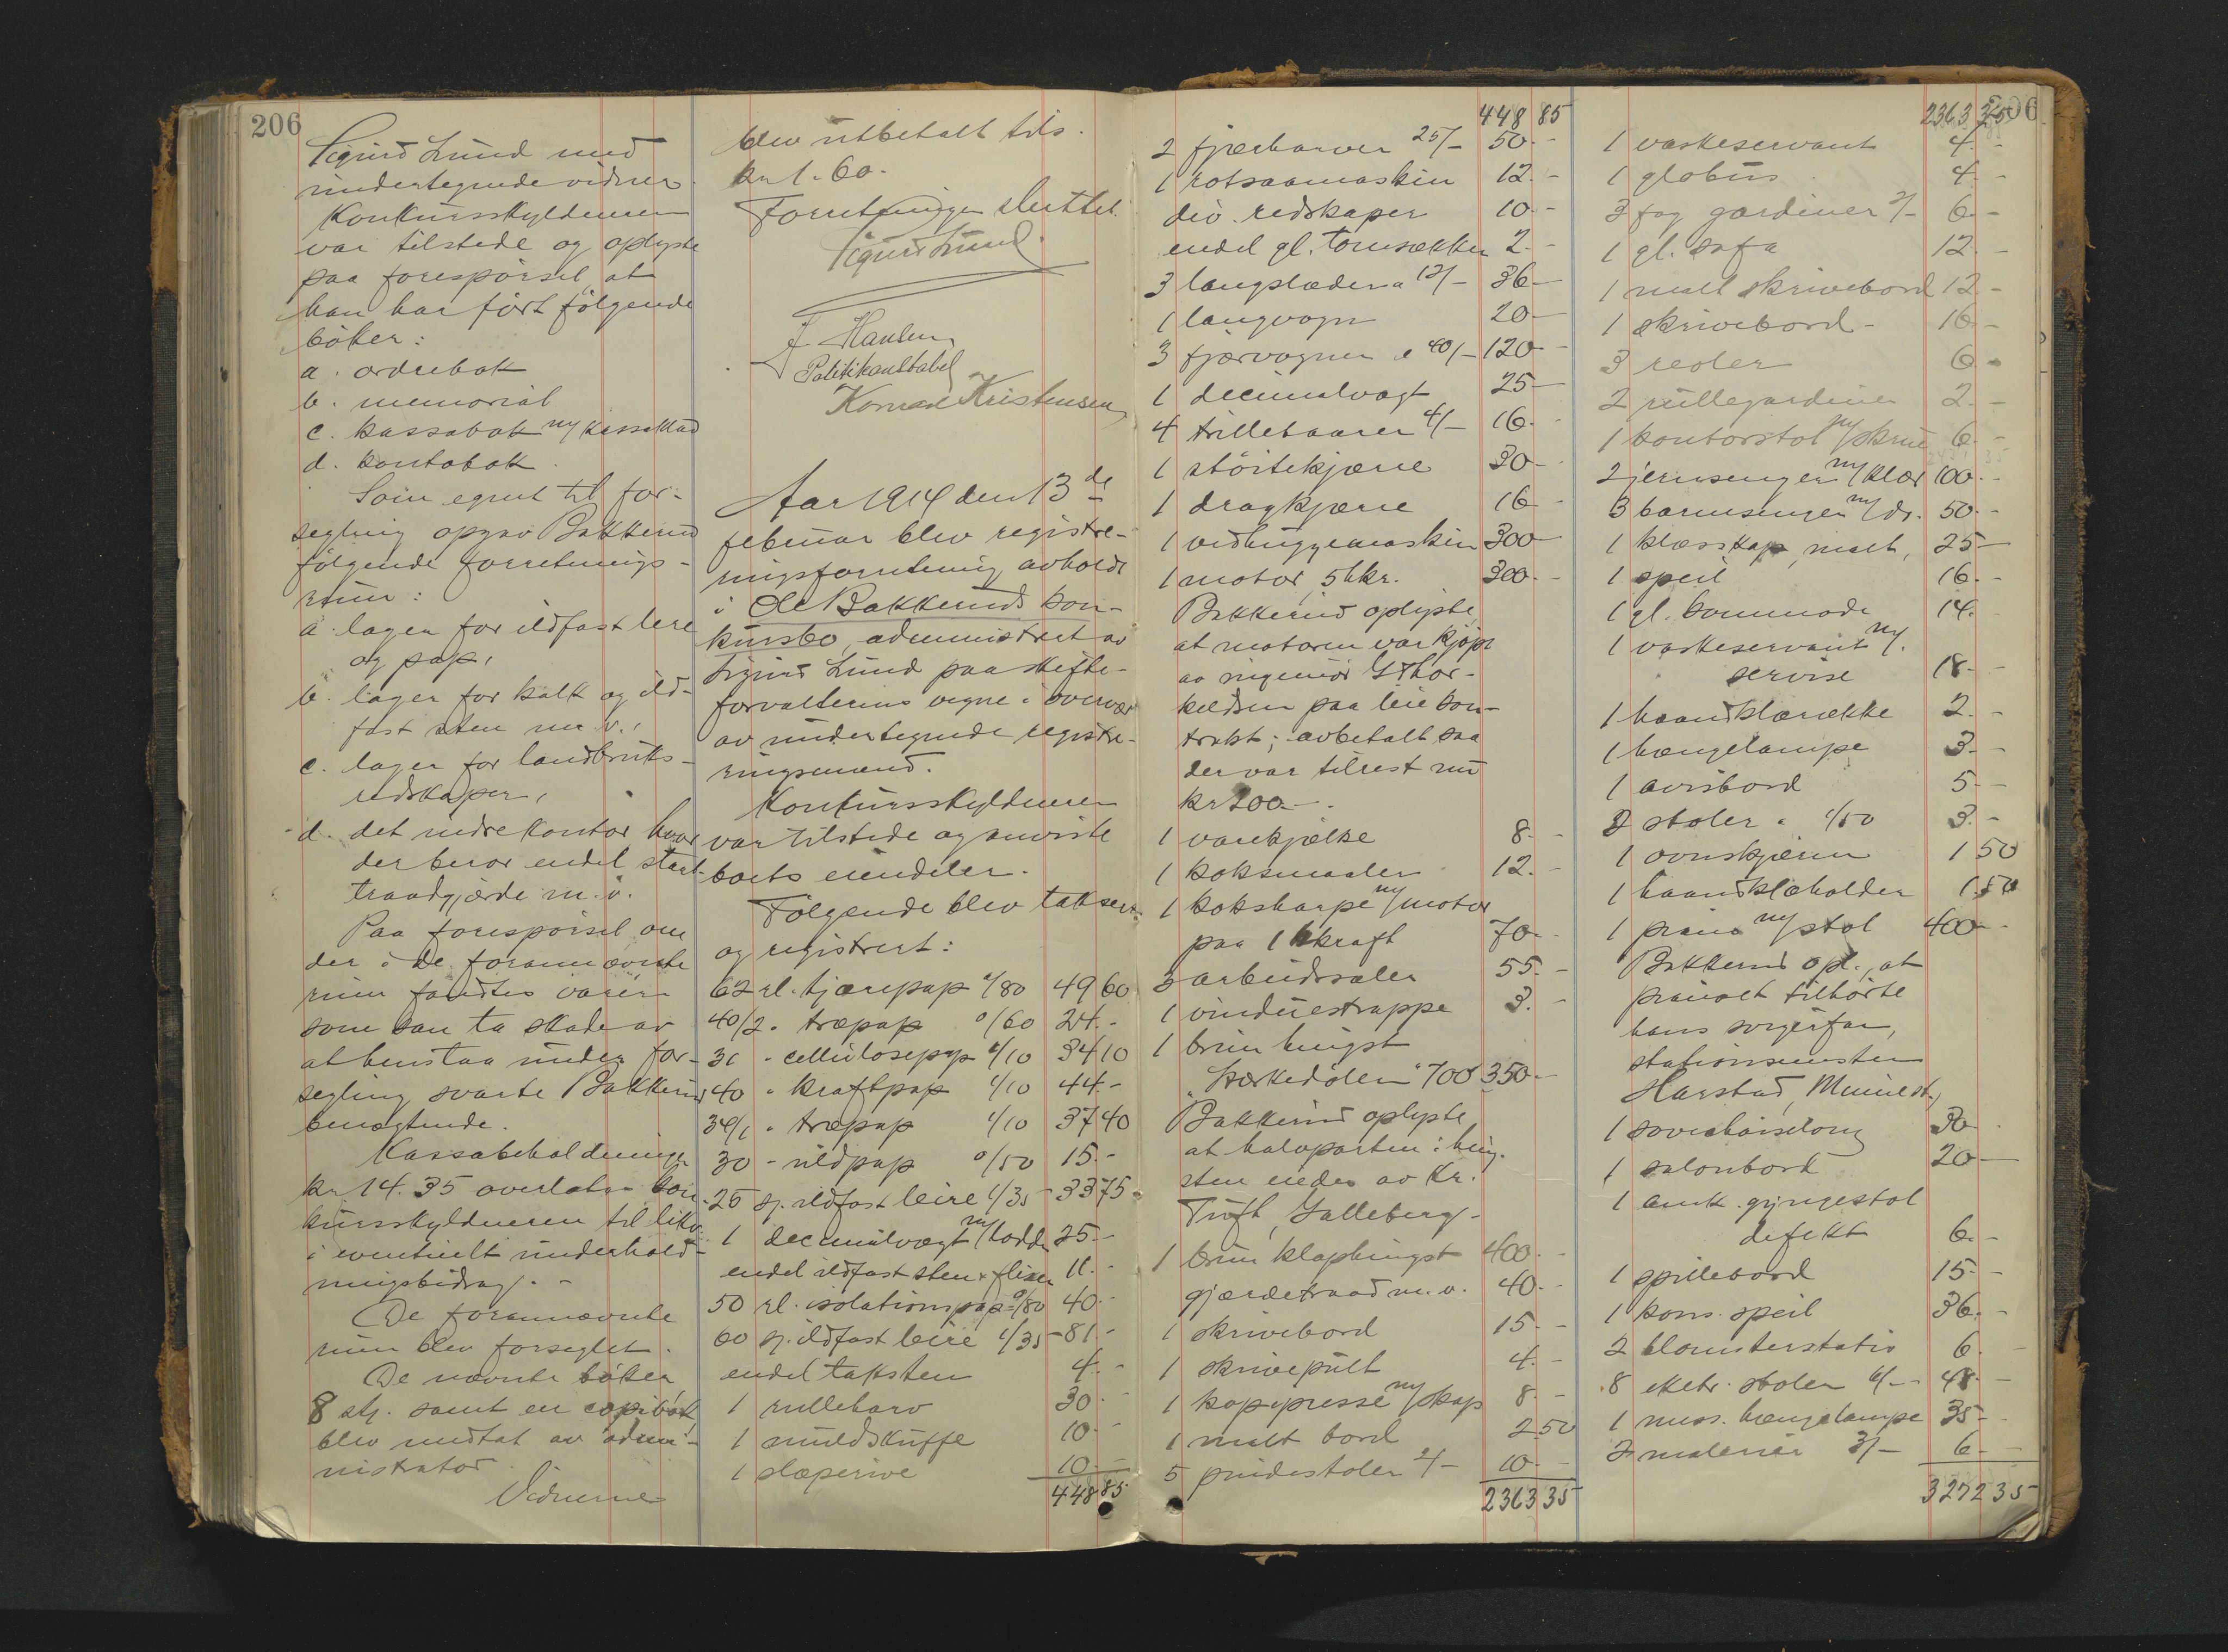 206
Sigurd Lund med
undertegnede vidner.
Konkursskyldneren
var tilstede og oplyste
paa forespörsel, at
han har fört fölgende
böker:
a. ordrebok
b. memorial
c. kassabok m/ kassaklad
d. kontobok.
Som egnet til for-
segling opgav Bakkerud
fölgende forretnings-
rum:
a. lager for ildfast lere
og pap,
b. lager for kalk og ild-
fast sten m. v.,
c. lager for landbruks-
redskaper,
d. det nedre kontor hvor
der beror endel staal-
traadgjærde m. v.
Paa forespörsel om
der i de forannævnte
rum fandtes varer
som kan ta skade av
at henstaa under for-
segling svarte Bakkerud
benægtende.
Kassabeholdningen
kr. 14.35 overlates kon-
kursskyldneren til likv.
i eventuelt underhold-
ningsbidrag. -
De forannævnte
rum blev forseglet.
De nævnte böker
8 stj. samt en copibok
blev mottat av admi-
nistrator.
Vidnerne
blev utbetalt tils.
kr. 1.60.
Forretningen sluttet.
Sigurd Lund.
J. Hansen
Politikonstabel
Konrad Kristensen
Aar 1914 den 13 de
februar blev registre-
ringsforretning avholdt
i Ole Bakkeruds kon-
kursbo, administrert av
Sigurd Lund paa skifte-
forvalterens vegne i overvær
av undertegnede registre-
ringsmænd.
Konkursskyldneren
var tilstede og anviste
boets eiendeler.
Fölgende blev taksert
og registrert:
62 rl. tjærepap a/80 49 60
40/2 " træpap a/60 24.-
31 " cellulosepap 1/10 34 10
40 " kraftpap 1/10 44.-
34/1 " træpap 1/10 37 40
30 - uldpap a/50 15.-
25 sj. ildfast leire 1/35 - 33 75
1 decimalvægt m/ lodder 25.-
endel ildfast sten + fliser 11.-
50 rl. isolationspap a/80 40.-
60 sj. ildfast leire 1/35 - 81.-
endel taksten 4.-
1 rulleharv 30.-
1 muldskuffe 10.-
1 slæperive 10.-
448 85
448 85
2 fjærharver 25/- 50.-
1 rotsaamaskin 12.-
div. redskaper 10.-
endel gl. tomsækker 2.-
3 langslæder a 12/- 36-
1 langvogn 20-
3 fjærvogner a 40/- 120-
1 decimalvægt 25-
4 trillebaarer 4/- 16.-
1 störtekjærre 30-
1 dragkjærre 16-
1 vedhuggemaskin 300-
1 motor, 5 hkr. 300.-
Bakkerud oplyste,
at motoren var kjöpt
av ingeniör G Thor-
kildsen paa leiekon-
trakt; avbetalt saa
der var tilrest nu
kr 200.-
1 varekjælke 8.-
1 koksmaaler 12.-
1 koksharpe m/ motor
paa 1 hkraft 70.-
3 arbeidssæler 55.-
1 vinduestrappe 3.-
1 brun hingst
"Stærkedolen" 700 350.-
Bakkerud oplyste
at halvparten i hing-
sten eiedes av Kr.
Tuft, Galleberg-
1 brun klaphingst 400.-
gjærdetraad m. v. 40.-
1 skrivebord 15.-
1 skrivepult 4.-
1 kopipresse m/ skap 8.-
1 malt bord 2 50
5 pindestoler 2/- 10.-
2363 35
206
2363 35
1 vaskeservant 4.-
1 globus 4.-
3 fag gardiner 2/- 6.-
1 gl. sofa 12.-
1 malt skrivebord 12.-
1 skrivebord - 16.-
3 reoler 6.-
2 rullegardiner 2.-
1 kontorstol m/ skrue 6.-
2 jernsenger m/ klær 100.-
3 barnsenger m/ do. 50.-
1 klæsskap, malt, 25-
1 speil 16.-
1 gl. kommode 14.
1 vaskeservant m/.
servise 18.-
1 haandklærække 2.-
1 hængelampe 3.-
1 avisbord 5.-
2 stoler a 1/50 3.-
1 ovnskjærm 1 50
1 haandklæholder 1 50
1 piano m/ stol 400.-
Bakkerud opl., at
pianoet tilhörte
hans svigerfar,
stationsmester
Harstad,
1 sovechaiselong 30.
1 salonbord 20-
1 amk. gyngestol
defekt 6.-
1 spillebord 15.-
1 kons. speil 36.-
2 blomsterstativ 6.-
8 eketr. stoler 6/- 48.-
1 mess. hængelampe 35-
2 malerier 3/- 6.-
3272 35